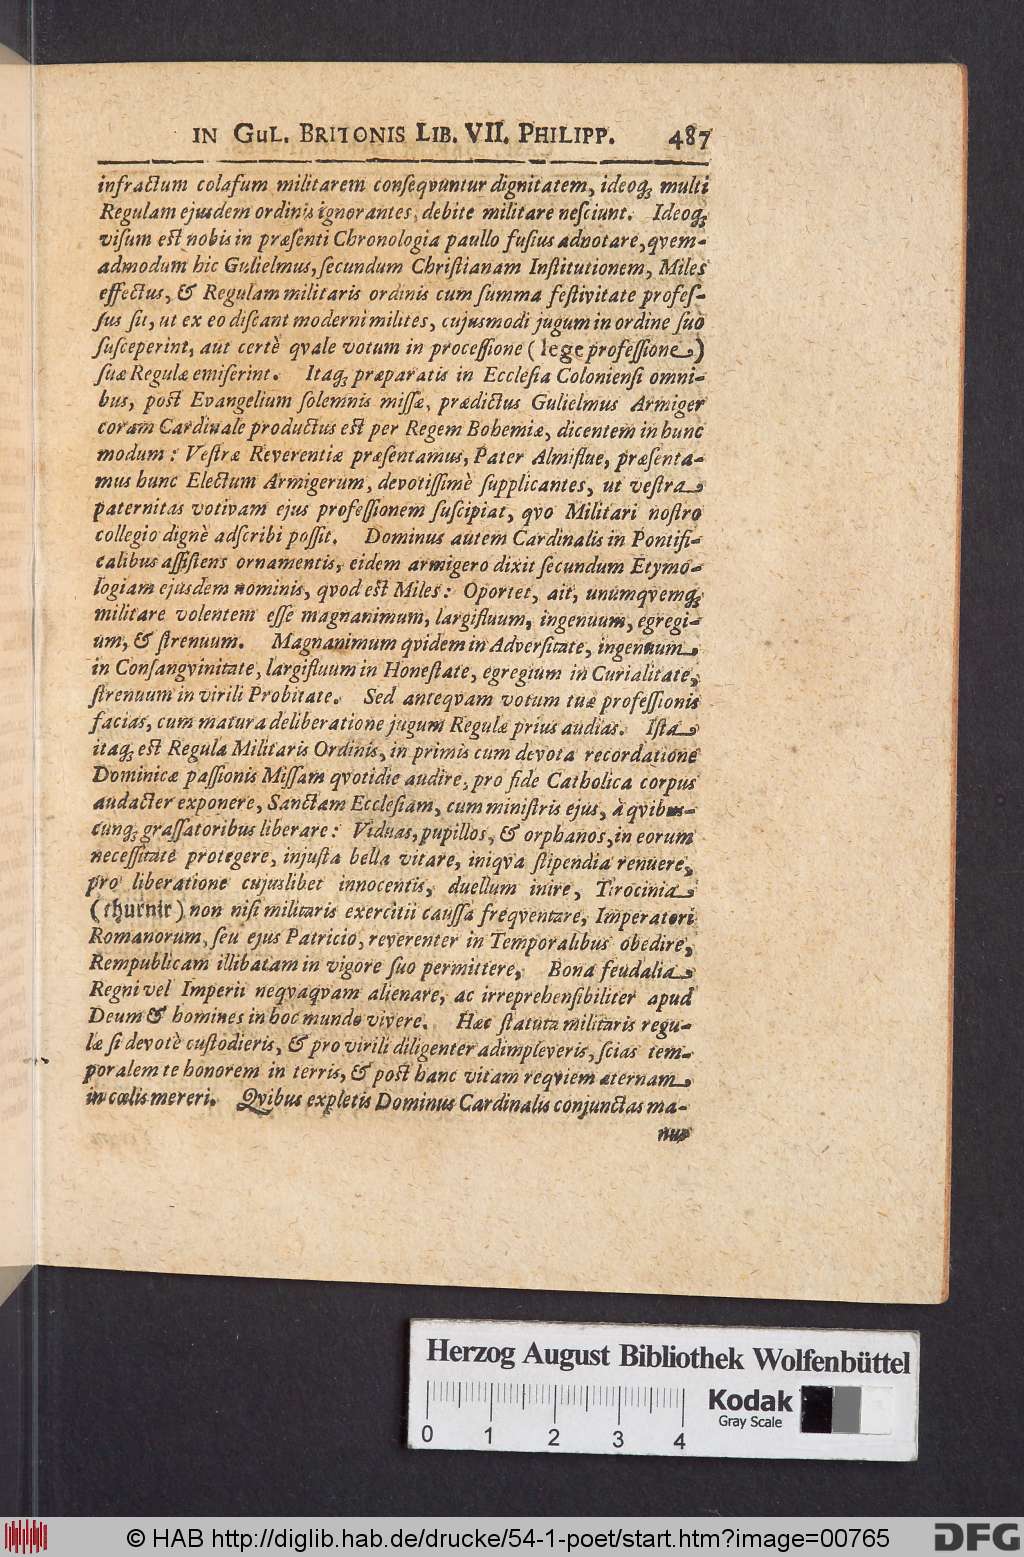 IN GUL. BRITONIS LIB. VII. PHILIPP. 487
infractum colafum militarem conſeqvuntur dignitatem, ideoq; multi
Regulam ejusdem ordinis ignorantes, debite militare neſciunt. Ideoq;
viſum eſt nobis in præſenti Chronologia paullo fuſius adnotare, qvem-
admodum hic Gulielmus, ſecundum Chriſtianam Inſtitutionem, Miles
effectus, & Regulam militaris ordinis cum ſumma feſtivitate profeſ-
ſus ſit, ut ex eo diſcant moderni milites, cujusmodi jugum in ordine ſuo
ſuſceperint, aut certè qvale votum in proceſſione (lege profeſſione)
ſuæ Regulæ emiſerint. Itaq; præparatis in Eccleſia Colonienſi omni-
bus, poſt Evangelium ſolemnis miſſæ, prædictus Gulielmus Armiger
coram Cardinale productus eſt per Regem Bohemiæ, dicentem in hunc
modum: Veſtræ Reverentiæ præſentamus, Pater Almiflue, præſenta-
mus hunc Electum Armigerum, devotiſſimè ſupplicantes, ut veſtra
paternitas votivam ejus profeſſionem ſuſcipiat, qvo Militari noſtro
collegio dignè adſcribi poſſit. Dominus autem Cardinalis in Pontifi-
calibus aſſiſtens ornamentis, eidem armigero dixit ſecundum Etymo-
logiam ejusdem nominis, qvod eſt Miles: Oportet, ait, unumqvemq;
militare volentem eſſe magnanimum, largifluum, ingenuum, egregi-
um, & ſtrenuum. Magnanimum qvidem in Adverſitate, ingenuum
in Conſangvinitate, largifluum in Honeſtate, egregium in Curialitate,
ſtrenuum in virili Probitate. Sed anteqvam votum tuæ profeſſionis
facias, cum matura deliberatione jugum Regulæ prius audias. Iſta
itaq; eſt Regula Militaris Ordinis, in primis cum devota recordatione
Dominicæ paſſionis Miſſam qvotidie audire, pro fide Catholica corpus
audacter exponere, Sanctam Eccleſiam, cum miniſtris ejus, à qvibus-
cunq; graſſatoribus liberare: Viduas, pupillos, & orphanos, in eorum
neceſſitate protegere, injuſta bella vitare, iniqva ſtipendia renuere,
pro liberatione cujuslibet innocentis, duellum inire, Tirocinia
(thurnir) non niſi militaris exercitii cauſſa freqventare, Imperatori
Romanorum, ſeu ejus Patricio, reverenter in Temporalibus obedire,
Rempublicam illibatam in vigore ſuo permittere, Bona feudalia
Regni vel Imperii neqvaqvam alienare, ac irreprehenſibiliter apud
Deum & homines in hoc mundo vivere. Hæc ſtatuta militaris regu-
læ ſi devotè cuſtodieris, & pro virili diligenter adimpleveris, ſcias tem-
poralem te honorem in terris, & poſt hanc vitam reqviem æternam
in cœlis mereri. Qvibus expletis Dominus Cardinalis conjunctas ma-
nus
Herzog August Bibliothek Wolfenbüttel
Kodak
Gray Scale
0 1 2 3 4
© HAB http://diglib.hab.de/drucke/54-1-poet/start.htm?image=00765
DFG